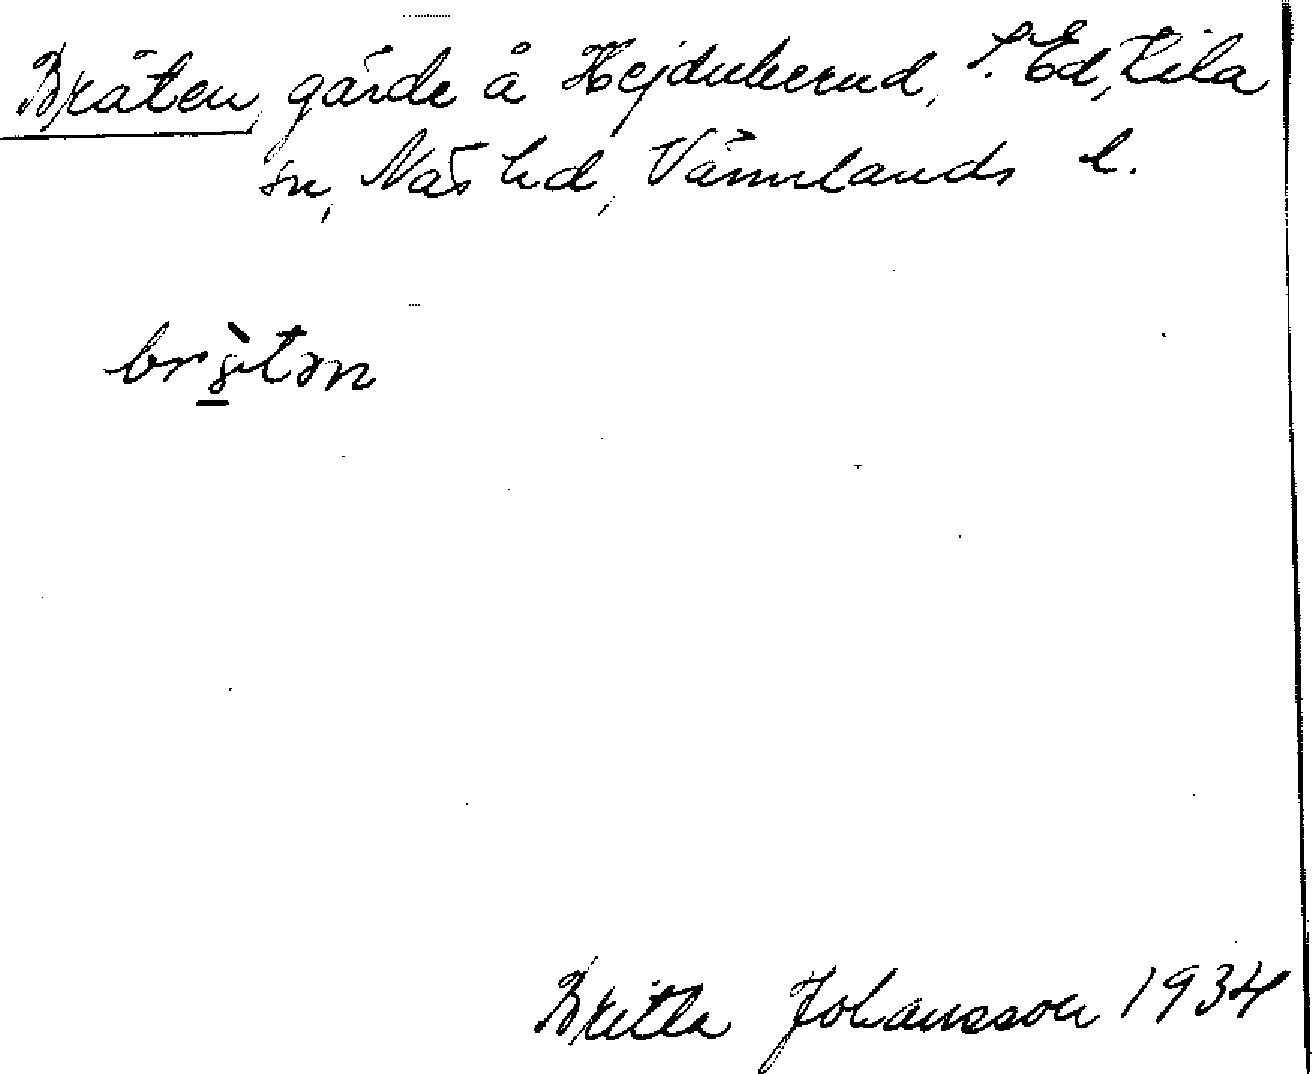 Bråten, gärde å Hejdukerud, S. Ed, Kila
sn, Näs hd, Värmlands l.
Britta Johansson 1934